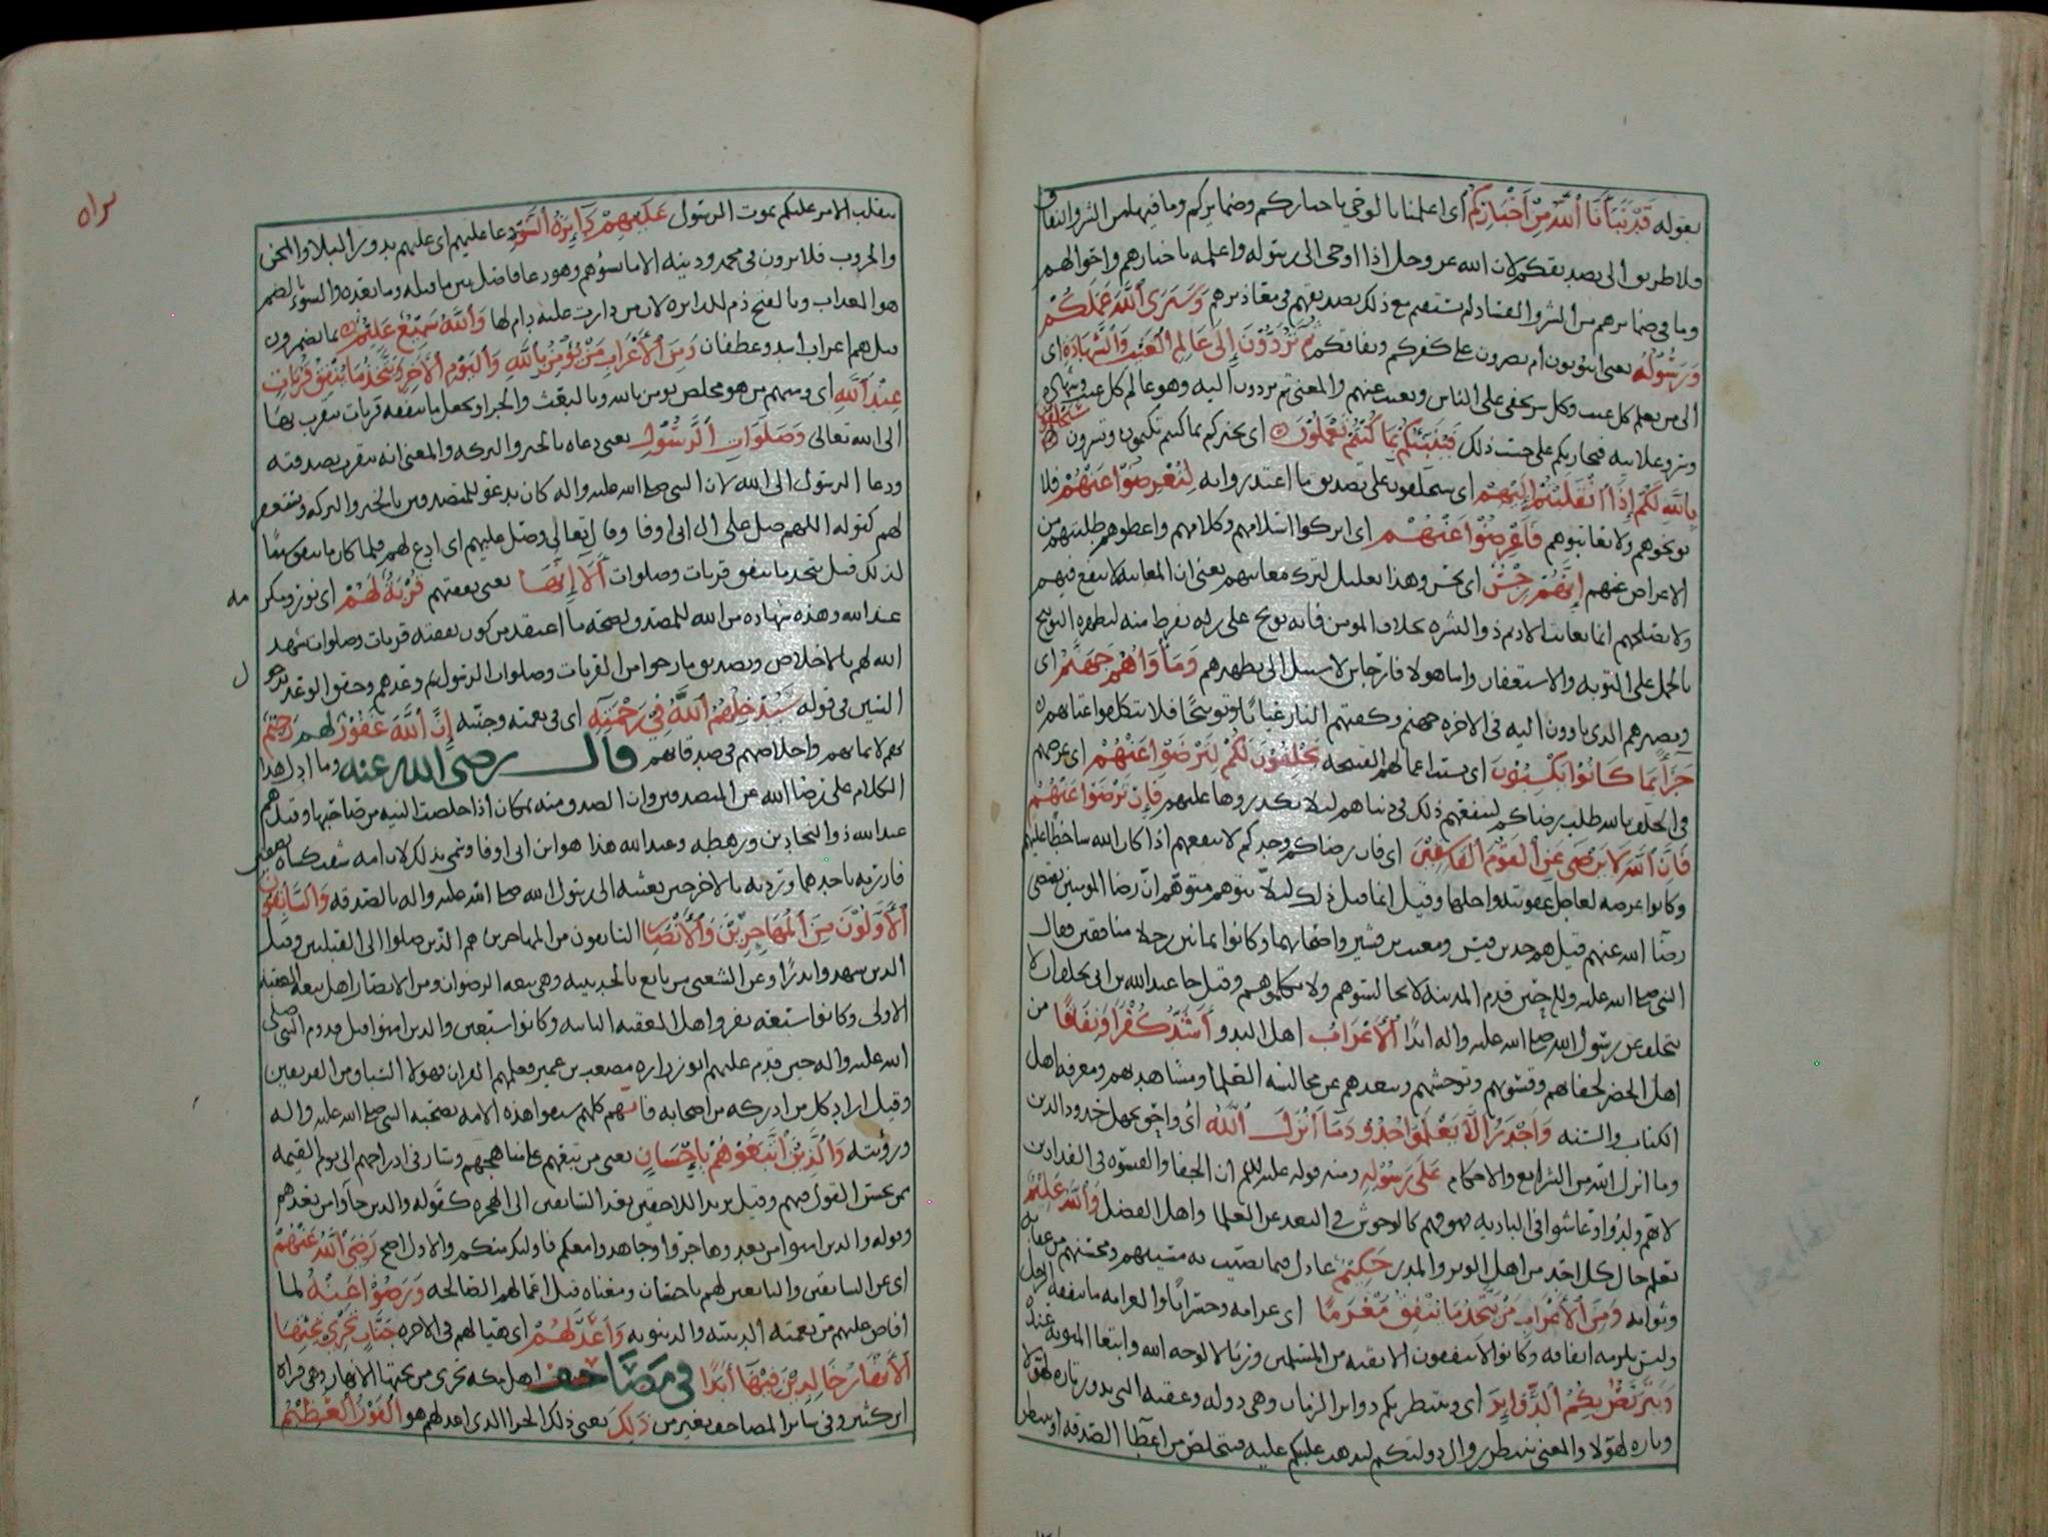 بقوله قَدْ نَبَّأَنَا اللَّهُ مِنْ أَخْبَارِكُمْ أي اعلمنا بالوحي باخباركم وضمايركم وما فيها من الشر والنفاق
فلا طريق الى تصديقكم لان الله عز وجل اذا اوحى الى رسوله واعلمه باخبارهم واحوالهم
وما في ضمايرهم من الشر والفساد لم يستقم مع ذلك تصديقهم في معاذيرهم وَسَيَرَى اللَّهُ عَمَلَكُمْ
وَرَسُولُهُ يعني اتتوبون ام تصرون على كفركم ونفاقكم ثُمَّ تُرَدُّونَ إِلَى عَالِمِ الْغَيْبِ وَالشَّهَادَةِ اي
الى من يعلم كل غيب وكل سر يخفى على الناس ويغيب عنهم والمعنى ثم تردون اليه وهو عالم كل غيب وشهادة
وسر وعلانيه فيجازيكم على حسب ذلك فَيُنَبِّئُكُمْ بِمَا كُنْتُمْ تَعْمَلُونَ اي يخبركم بما كنتم تكتمون وتسرون سَيَحْلِفُونَ
بِاللَّهِ لَكُمْ إِذَا انْقَلَبْتُمْ إِلَيْهِمْ اي سيحلفون على تصديق ما اعتذروا به لِتُعْرِضُوا عَنْهُمْ فلا
توبخوهم ولا تعاتبوهم فَأَعْرِضُوا عَنْهُمْ اي اتركوا اسلامهم وكلامهم واعطوهم طلبتهم من
الاعراض عنهم إِنَّهُمْ رِجْسٌ اي نجس وهذا تعليل لترك معاتبتهم يعني ان المعاتبه لا تنفع فيهم
ولا تصلحهم انما يعاتب الاديم ذو البشره بخلاف المومن فانه يوبخ على زلة تفرط منه ليطهره التوبيخ
بالحمل على التوبه والاستغفار واما هولا فارجاس لا سبيل الى تطهيرهم وَمَأْوَاهُمْ جَهَنَّمُ اي
ومصيرهم الذي ياوون اليه في الاخره جهنم وكفتهم النار عتابا وتوبيخا فلا تتكلفوا عتابهم
جَزَاءً بِمَا كَانُوا يَكْسِبُونَ اي بسبب اعمالهم القبيحه يَحْلِفُونَ لَكُمْ لِتَرْضَوْا عَنْهُمْ اي غرضهم
في الحلف بالله طلب رضاكم لينفعهم ذلك في دنياهم ليلا يكدروها عليهم فَإِنْ تَرْضَوْا عَنْهُمْ
فَإِنَّ اللَّهَ لَا يَرْضَى عَنِ الْقَوْمِ الْفَاسِقِينَ اي فان رضاكم وحدكم لا ينفعهم اذا كان الله ساخطا عليهم
وكانوا عرضه لعاجل عقوبته واجلها وقيل انما قيل ذلك ليلا يتوهم متوهم ان رضا المومنين يقتضي
رضا الله عنهم قيل هم جد بن قيس ومعتب بن قشير واصحابهما وكانوا ثمانين رجلا منافقين فقال
النبي صلى الله عليه وسلم حين قدم المدينه لا تجالسوهم ولا تكلموهم وقيل جا عبدالله بن ابي يحلف ان لا
يتخلف عن رسول الله صلى الله عليه واله ابدا الْأَعْرَابُ اهل البدو أَشَدُّ كُفْرًا وَنِفَاقًا من
اهل الحضر لجفاهم وقسوتهم وتوحشهم وبعدهم عن مجالسه العلما ومشاهدتهم ومعرفه اهل
الكتاب والسنه وَأَجْدَرُ أَلَّا يَعْلَمُوا حُدُودَ مَا أَنْزَلَ اللَّهُ أي واحق بجهل حدود الدين
وما انزل الله من الشرايع والاحكام عَلَى رَسُولِهِ ومنه قوله عليه السلم ان الجفا والقسوه في الفدادين
لانهم ولدوا وعاشوا في الباديه فهم كالوحوش في البعد عن العلما واهل الفضل وَاللَّهُ عَلِيمٌ
يعلم حال كل احد من اهل الوبر والمدر حَكِيمٌ عادل فيما يصيب به مسيئهم ومحسنهم من عقابه
وثوابه وَمِنَ الْأَعْرَابِ مَنْ يَتَّخِذُ مَا يُنْفِقُ مَغْرَمًا اي غرامه وخسرانا والغرامه ما ينفقه الرجل
وليس يلزمه انفاقه وكانوا لا ينفقون الا تقيه من المسلمين وريا لا لوجه الله وابتغا المثوبه عنده
وَيَتَرَبَّصُ بِكُمُ الدَّوَائِرَ اي وينتظر بكم دواير الزمان وهي دوله وعقبه التي تدور تاره لهولا
وتاره لهولا والمعنى ينتظر زوال دولتكم ليذهب غلبتكم عليه فيتخلص من اعطا الصدقه او ينتظر
براه
ينقلب الامر عليكم بموت الرسول عَلَيْهِمْ دَائِرَةُ السَّوْءِ دعا عليهم اي عليهم يدور البلاء والمحن
والحروب فلا يرون في محمد ودينه الا ما يسوهم وهو دعا فاصل بين ما قبله وما بعده والسوء بالضم
هو العذاب وبالفتح ذم للدايره لان من دارت عليه ذام لها وَاللَّهُ سَمِيعٌ عَلِيمٌ بما يضمرون
قيل هم اعراب اسد وغطفان وَمِنَ الْأَعْرَابِ مَنْ يُؤْمِنُ بِاللَّهِ وَالْيَوْمِ الْآخِرِ وَيَتَّخِذُ مَا يُنْفِقُ قُرُبَاتٍ
عِنْدَ اللَّهِ اي ومنهم من هو مخلص يومن بالله وبالبعث والجزا ويجعل ما ينفقه قربات يتقرب بها
الى الله تعالى وَصَلَوَاتِ الرَّسُولِ يعني دعاه بالخير والبركه والمعنى انه يتقرب بصدقته
ودعا الرسول الى الله لان النبي صلى الله عليه واله كان يدعو للمتصدقين بالخير والبركه ويستغفر
لهم كقوله اللهم صل على ال ابي اوفا وقال تعالى وصل عليهم اي ادع لهم فلما كان ما ينفق سببا
لذلك قيل يتخذ ما ينفق قربات وصلوات أَلَا إِنَّهَا يعني نفقتهم قُرْبَةٌ لَهُمْ اي نور ومكر مه
عند الله وهذه شهاده من الله للمتصدق بصحه ما اعتقد من كون نفقته قربات وصلوات شهد
الله لهم بالاخلاص وتصديق ما رجوا من القربات وصلوات الرسول ثم وعدهم وحقق الوعد بدخو ل
السين في قوله سَيُدْخِلُهُمُ اللَّهُ فِي رَحْمَتِهِ اي في نعمته وجنته إِنَّ اللَّهَ غَفُورٌ لهم رَحِيمٌ
بهم لايمانهم واخلاصهم في صدقاتهم قال رضي الله عنه وما ادل هذا
الكلام على رضا الله عن المتصدقين وان الصدقه منه بمكان اذا خلصت النيه من صاحبها وقيل هم
عبدالله ذو النجادين ورهطه وعبدالله هذا هو ابن ابي اوفا وسمي بذلك لان امه شقت كساه نصفين
فاتزر باحدهما وتردى بالاخر حين بعثته الى رسول الله صلى الله عليه واله بالصدقه وَالسَّابِقُونَ
الْأَوَّلُونَ مِنَ الْمُهَاجِرِينَ وَالْأَنْصَارِ السابقون من المهاجرين هم الذين صلوا الى القبلتين وقيل
الذين شهدوا بدرا وعن الشعبي من بايع بالحديبيه وهي بيعه الرضوان ومن الانصار اهل بيعه العقبه
الاولى وكانوا سبعه نفر واهل العقبه الثانيه وكانوا سبعين والذين امنوا قبل قدوم النبي صلى
الله عليه واله حين قدم عليهم ابو زراره مصعب بن عمير فعلمهم القران فهولا السباق من الفريقين
وقيل اراد كل من ادركه من اصحابه فانهم كلهم سبقوا هذه الامه بصحبه النبي صلى الله عليه واله
ورؤيته وَالَّذِينَ اتَّبَعُوهُمْ بِإِحْسَانٍ يعني من تبعهم على مناهجهم وسار في ادراجهم الى يوم القيمه
ممن يحسن القول فيهم وقيل يريد اللاحقين بعد السابقين الى الهجره كقوله والذين جاوا من بعدهم
وقوله والذين امنوا من بعد وهاجروا وجاهدوا معكم فاوليك منكم والاول اصح رَضِيَ اللَّهُ عَنْهُمْ
اي عن السابقين والتابعين لهم باحسان ومعناه قبل اعمالهم الصالحه وَرَضُوا عَنْهُ لما
افاض عليهم من نعمته الدينيه والدنيويه وَأَعَدَّ لَهُمْ اي هيا لهم في الاخره جَنَّاتٍ تَجْرِي تَحْتَهَا
الْأَنْهَارُ خَالِدِينَ فِيهَا أَبَدًا في مصاحف اهل مكه تجري من تحتها الانهار وهي قراه
ابن كثير وفي ساير المصاحف بغير من ذَلِكَ يعني ذلك الجزا الذي اعد لهم هو الْفَوْزُ الْعَظِيمُ